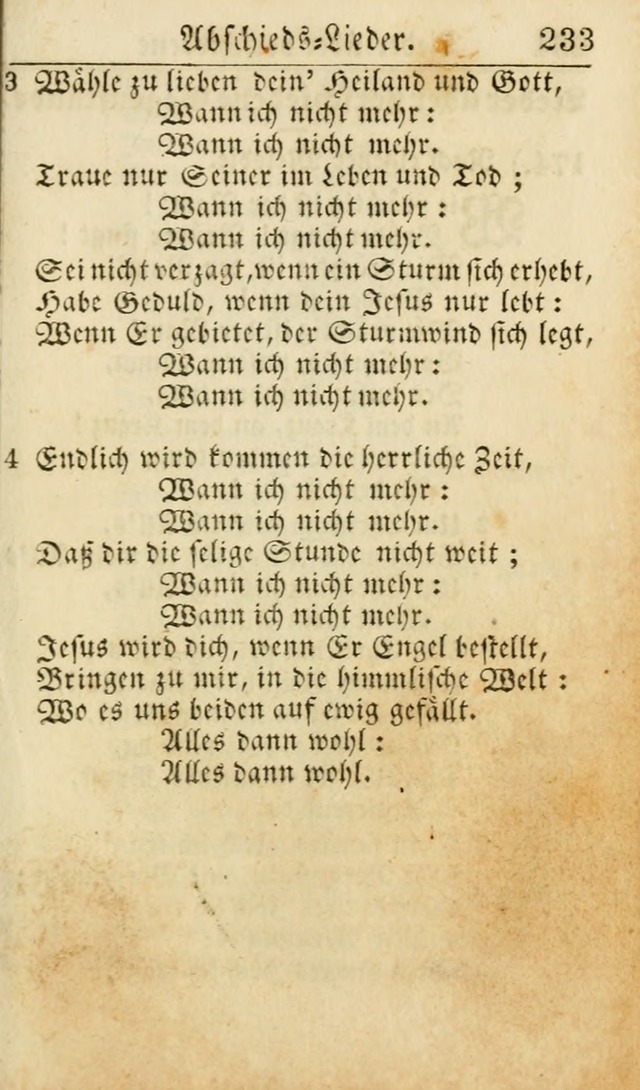 Abschieds-Lieder. 233
3 Wåhle zu lieben dein' Heiland und Gott,
Wann ich nicht mehr:
Wann ich nicht mehr.
Traue nur Seiner im Leben und Tod;
Wann ich nicht mehr:
Wann ich nicht mehr.
Sei nicht verzagt, wenn ein Sturm sich erhebt,
Habe Geduld, wenn dein Jesus nur lebt:
Wenn Er gebietet, der Sturmwind sich legt,
Wann ich nicht mehr:
Wann ich nicht mehr.
4 Endlich wird kommen die herrliche Zeit,
Wann ich nicht mehr:
Wann ich nicht mehr.
Daß dir die selige Stunde nicht weit;
Wann ich nicht mehr:
Wann ich nicht mehr.
Jesus wird dich, wenn Er Engel bestellt,
Bringen zu mir, in die himmlische Welt:
Wo es uns beiden auf ewig gefållt.
Alles dann wohl:
Alles dann wohl.